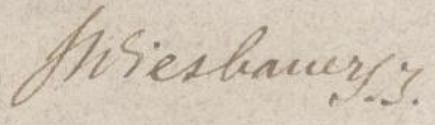 JWiesbaur S.J.